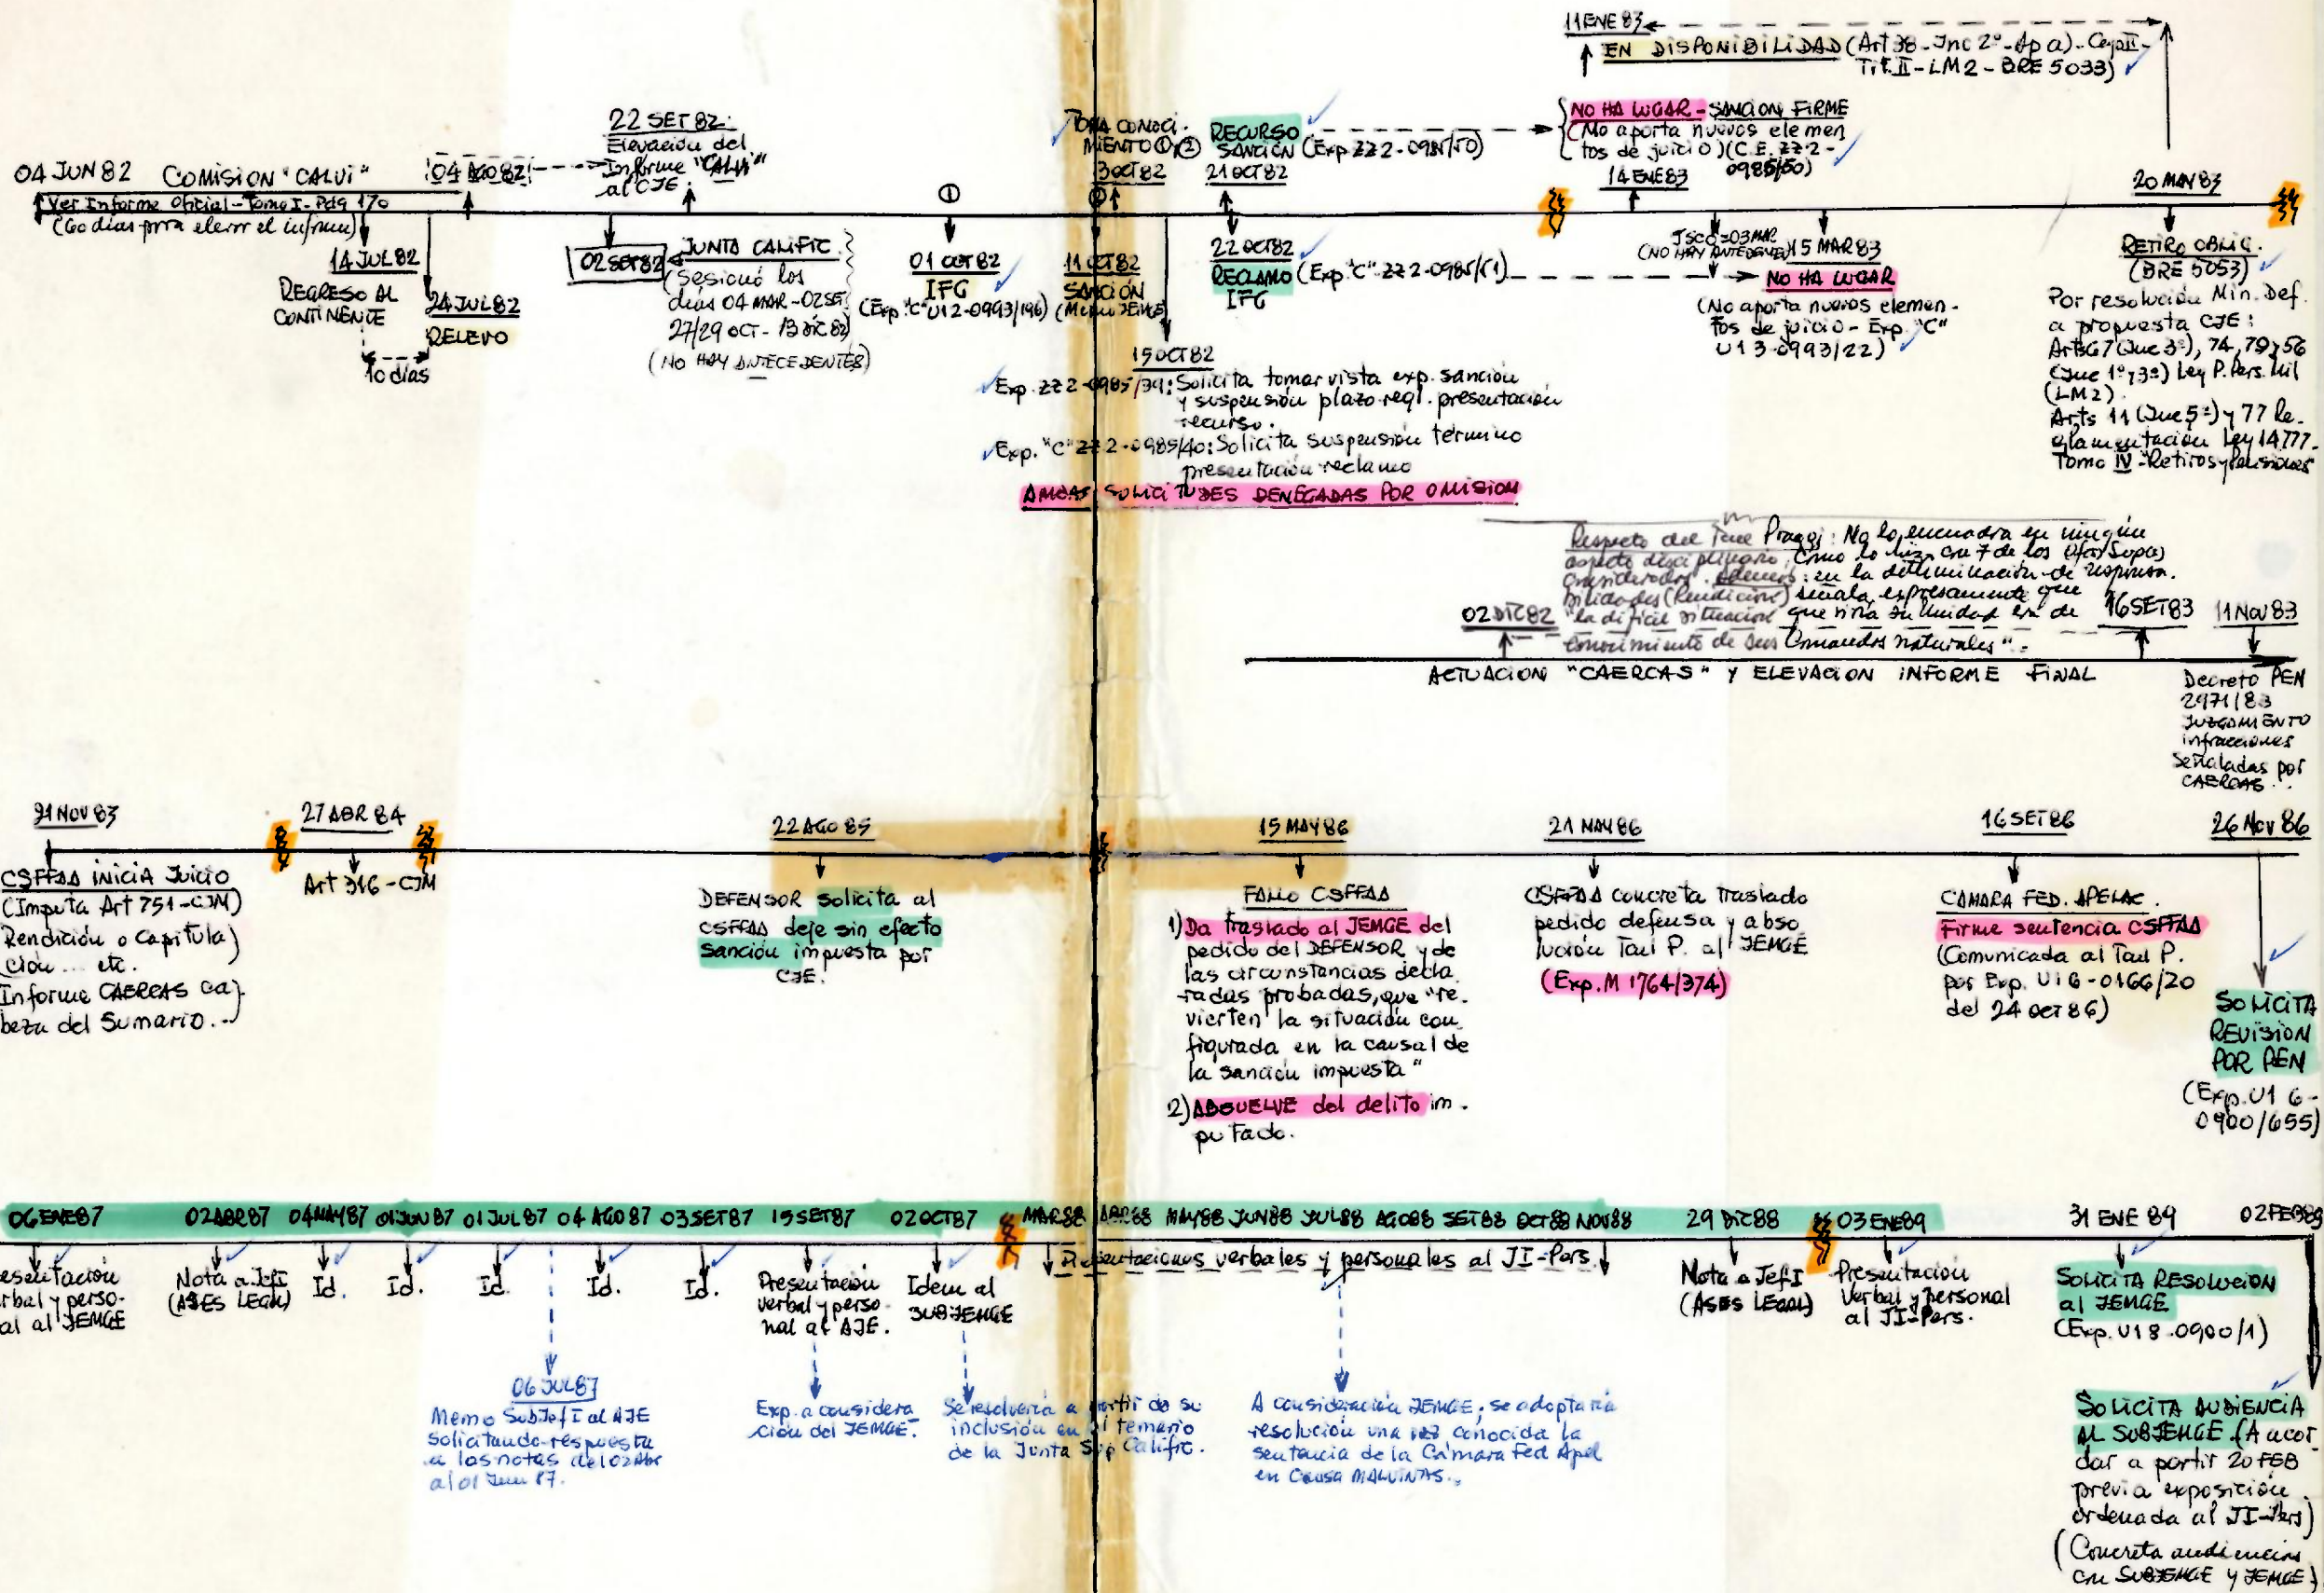 11 ENE 83
EN DISPONIBILIDAD (Art 38 - Inc 2º - Ap a) - Cap II -
Tit. II - LM2 - BRE 5033)
04 JUN 82
COMISION "CALVI"
04 AGO 82
Ver Informe Oficial - Tomo I - Pág 170
(60 días para elevar el informe)
14 JUL 82
REGRESO AL
CONTINENTE
24 JUL 82
RELEVO
10 días
22 SET 82:
Elevación del
Informe "CALVI"
al CJE.
02 SET 82
JUNTA CALIFIC.
(Sesionó los
días 04 MAR - 02 SET
27/29 OCT - 13 DIC 82)
(NO HAY ANTECEDENTES)
①
01 OCT 82
IFG
(Exp. "C" U12-0993/196)
TOMA CONOCI-
MIENTO ① y ②
13 OCT 82
②
11 OCT 82
SANCIÓN
(Memo JEMGE)
RECURSO
SANCIÓN (Exp ZZ2-0985/50)
21 OCT 82
NO HA LUGAR - SANCION FIRME
(No aporta nuevos elemen
tos de juicio) (C.E. ZZ2-
0985/50)
14 ENE 83
22 OCT 82
RECLAMO (Exp. "C" ZZ2-0985/51)
IFG
03 MAR
(NO HAY ANTECEDENTES)
15 MAR 83
NO HA LUGAR
(No aporta nuevos elemen-
tos de juicio - Exp. "C"
U13-0993/22)
15 OCT 82
Exp. ZZ2-0985/39: Solicita tomar vista exp. sanción
y suspensión plazo regl. presentación
recurso.
Exp. "C" ZZ2-0985/40: Solicita suspensión término
presentación reclamo
AMBAS SOLICITUDES DENEGADAS POR OMISION
20 MAY 83
RETIRO OBLIG.
(BRE 5053)
Por resolución Min. Def.
a propuesta CJE:
Arts 67 (Inc 3º), 74, 79 y 56
(Inc 1º y 3º) Ley P. Pers. Mil
(LM2).
Arts 11 (Inc 5º) y 77 Re-
glamentación Ley 14777-
Tomo IV - "Retiros y Pensiones"
Respecto del Tcnl Piaggi: No lo encuadra en ningún
aspecto disciplinario, como lo hizo con 7 de los
considerados. Además: en la determinación de responsa-
bilidades (Rendición) señala expresamente que
"la difícil situación que vivía su Unidad era de
conocimiento de sus Comandos naturales".
02 DIC 82
16 SET 83
11 NOV 83
ACTUACION "CAERCAS" Y ELEVACION INFORME FINAL
Decreto PEN
2971/83
JUZGAMIENTO
infracciones
señaladas por
CAERCAS.
21 NOV 83
CSFFAA INICIA JUICIO
(Imputa Art 751-CJM)
Rendición o Capitula)
ción... etc.
Informe CAERCAS ca)
beza del Sumario...
27 ABR 84
Art 316 - CJM
22 AGO 85
DEFENSOR solicita al
CSFFAA deje sin efecto
sanción impuesta por
CJE.
15 MAY 86
FALLO CSFFAA
1) Da traslado al JEMGE del
pedido del DEFENSOR y de
las circunstancias decla
radas probadas, que "re-
vierten la situación con
figurada en la causal de
la sanción impuesta"
2) ABSUELVE del delito im-
putado.
21 MAY 86
CSFFAA concreta traslado
pedido defensa y abso
lución Tcnl P. al JEMGE
(Exp. M 1764/374)
16 SET 86
CAMARA FED. APELAC.
Firme sentencia CSFFAA
(Comunicada al Tcnl P.
por Exp. U16-0166/20
del 24 OCT 86)
26 NOV 86
SOLICITA
REVISION
POR PEN
(Exp. U16-
0900/655)
06 ENE 87 02 ABR 87 04 MAY 87 01 JUN 87 01 JUL 87 04 AGO 87 03 SET 87 15 SET 87 02 OCT 87 MAR 88 ABR 88 MAY 88 JUN 88 JUL 88 AGO 88 SET 88 OCT 88 NOV 88 29 DIC 88 03 ENE 89 31 ENE 89 02 FEB 89
esentación
rbal y perso-
al al JEMGE
Nota a Jef I
(ASES LEGAL)
Id.
Id.
Id.
Id.
Id.
Presentación
verbal y perso-
nal al AJE.
Idem al
SUBJEMGE
Presentaciones verbales y personales al JI-Pers.
Nota a Jef I
(ASES LEGAL)
Presentación
verbal y personal
al JI-Pers.
SOLICITA RESOLUCION
al JEMGE
(Exp. U18-0900/1)
06 JUL 87
Memo SubJef I al AJE
solicitando respuesta
a las notas del 02 Abr
al 01 Jun 87.
Exp. a considera
ción del JEMGE.
Se resolvería a partir de su
inclusión en el temario
de la Junta Sup Calific.
A consideración JEMGE; se adoptaría
resolución una vez conocida la
sentencia de la Cámara Fed Apel
en Causa MALVINAS.
SOLICITA AUDIENCIA
AL SUBJEMGE (A acor-
dar a partir 20 FEB
previa exposición
ordenada al JI-Pers)
(Concreta audiencias
con SUBJEMGE y JEMGE)